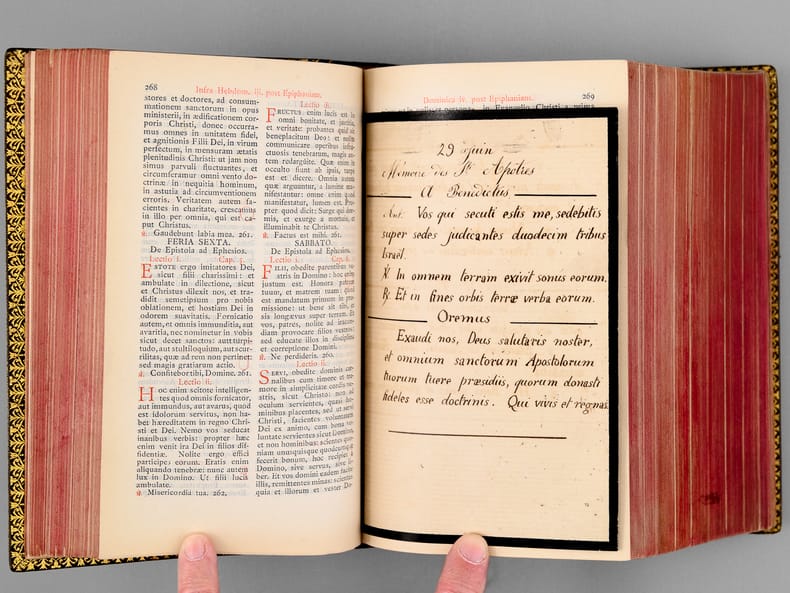 268
Infra Hebdom. iij. post Epiphaniam.
stores et doctores, ad consum-
mationem sanctorum in opus
ministerii, in ædificationem cor-
poris Christi, donec occurra-
mus omnes in unitatem fidei,
et agnitionis Filii Dei, in virum
perfectum, in mensuram ætatis
plenitudinis Christi: ut jam non
simus parvuli fluctuantes, et
circumferamur omni vento do-
ctrinæ in nequitia hominum,
in astutia ad circumventionem
erroris. Veritatem autem fa-
cientes in charitate, crescamus
in illo per omnia, qui est ca-
put Christus.
℟. Gaudebunt labia mea. 261.
FERIA SEXTA.
De Epistola ad Ephesios.
Lectio i. Cap. 5.
ESTOTE ergo imitatores Dei,
sicut filii charissimi: et
ambulate in dilectione, sicut
et Christus dilexit nos, et tra-
didit semetipsum pro nobis
oblationem, et hostiam Deo in
odorem suavitatis. Fornicatio
autem, et omnis immunditia, aut
avaritia, nec nominetur in vobis
sicut decet sanctos: aut turpi-
tudo, aut stultiloquium, aut scur-
rilitas, quæ ad rem non pertinet:
sed magis gratiarum actio.
℟. Confitebor tibi, Domine. 261.
Lectio ij.
HOC enim scitote intelligen-
tes quod omnis fornicator,
aut immundus, aut avarus, quod
est idolorum servitus, non ha-
bet hæreditatem in regno Chri-
sti et Dei. Nemo vos seducat
inanibus verbis: propter hæc
enim venit ira Dei in filios dif-
fidentiæ. Nolite ergo effici
participes eorum. Eratis enim
aliquando tenebræ: nunc autem
lux in Domino. Ut filii lucis
ambulate.
℟. Misericordia tua. 262.
Lectio iij.
FRUCTUS enim lucis est in
omni bonitate, et justitia,
et veritate: probantes quid sit
beneplacitum Deo: et nolite
communicare operibus infru-
ctuosis tenebrarum, magis au-
tem redargúite. Quæ enim in
occulto fiunt ab ipsis, turpe
est et dicere. Omnia autem
quæ arguuntur, a lumine ma-
nifestantur: omne enim quod
manifestatur, lumen est. Pro-
pter quod dicit: Surge qui dor-
mis, et exurge a mortuis, et
illuminabit te Christus.
℟. Factus est mihi. 261.
SABBATO.
De Epistola ad Ephesios.
Lectio i. Cap. 6.
FILII, obedite parentibus ve-
stris in Domino: hoc enim
justum est. Honora patrem
tuum, et matrem tuam, quod
est mandatum primum in pro-
missione: ut bene sit tibi, et
sis longævus super terram. Et
vos, patres, nolite ad iracun-
diam provocare filios vestros:
sed educate illos in disciplina
et correptione Domini.
℟. Ne perdideris. 260.
Lectio ij.
SERVI, obedite dominis car-
nalibus cum timore et tre-
more in simplicitate cordis ve-
stri, sicut Christo: non ad
oculum servientes, quasi ho-
minibus placentes, sed ut servi
Christi, facientes voluntatem
Dei ex animo, cum bona vo-
luntate servientes sicut Domino,
et non hominibus: scientes quo-
niam unusquisque quodcumque
fecerit bonum, hoc recipiet a
Domino, sive servus, sive li-
ber. Et vos domini eadem facite
illis, remittentes minas: scientes
quia et illorum et vester Do-
Dominica iv. post Epiphaniam.
269
29 Juin
Mémoire des Sts Apôtres
A Benedictus
Ant. Vos qui secuti estis me, sedebitis
super sedes judicantes duodecim tribus
Israël.
℣ In omnem terram exivit sonus eorum.
℟ Et in fines orbis terræ verba eorum.
Oremus
Exaudi nos, Deus salutaris noster,
et omnium sanctorum Apostolorum
tuorum tuere præsidiis, quorum donasti
fideles esse doctrinis. Qui vivis et regnas.